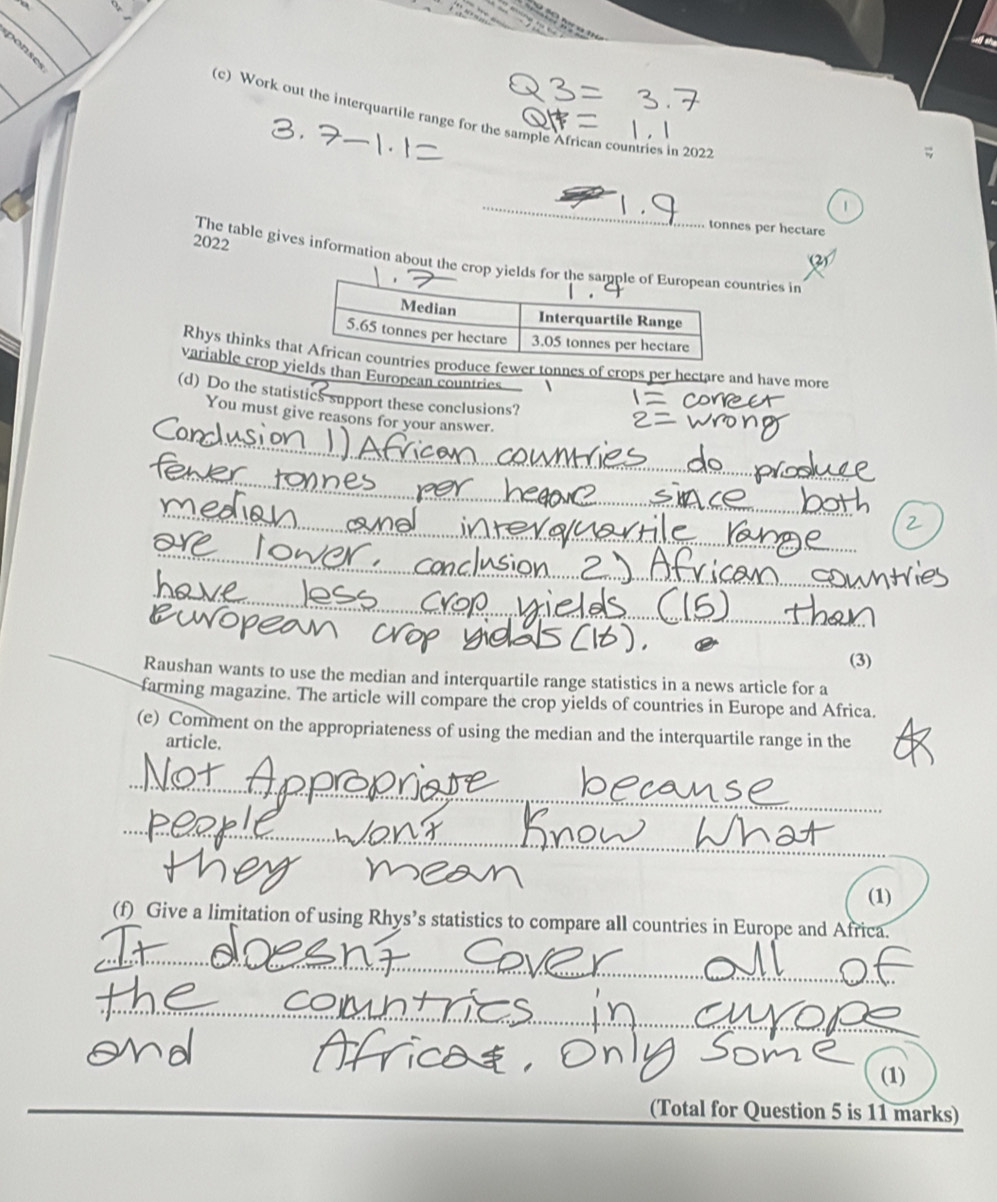 ponses:
(c) Work out the interquartile range for the sample African countries in 2022
Q3 = 3.7
Q1 = 1.1
3.7-1.1=
1.9 tonnes per hectare
1
(2)
The table gives information about the crop yields for the sample of European countries in
2022
1.7 1.9
Median Interquartile Range
5.65 tonnes per hectare 3.05 tonnes per hectare
Rhys thinks that African countries produce fewer tonnes of crops per hectare and have more
variable crop yields than European countries
1
2
1= correct
2= wrong
(d) Do the statistics support these conclusions?
You must give reasons for your answer.
Conclusion 1) African countries do produce
fewer tonnes per since both
median and interquartile range
are lower. conclusion 2) African countries
have less crop yields (15) than
european crop (16).
2
(3)
Raushan wants to use the median and interquartile range statistics in a news article for a
farming magazine. The article will compare the crop yields of countries in Europe and Africa.
(e) Comment on the appropriateness of using the median and the interquartile range in the
article.
Not Appropriate because
people won't know what
they mean
(1)
(f) Give a limitation of using Rhys's statistics to compare all countries in Europe and Africa.
It doesn't cover all of
the countries in europe
and Africa. only some
(1)
(Total for Question 5 is 11 marks)